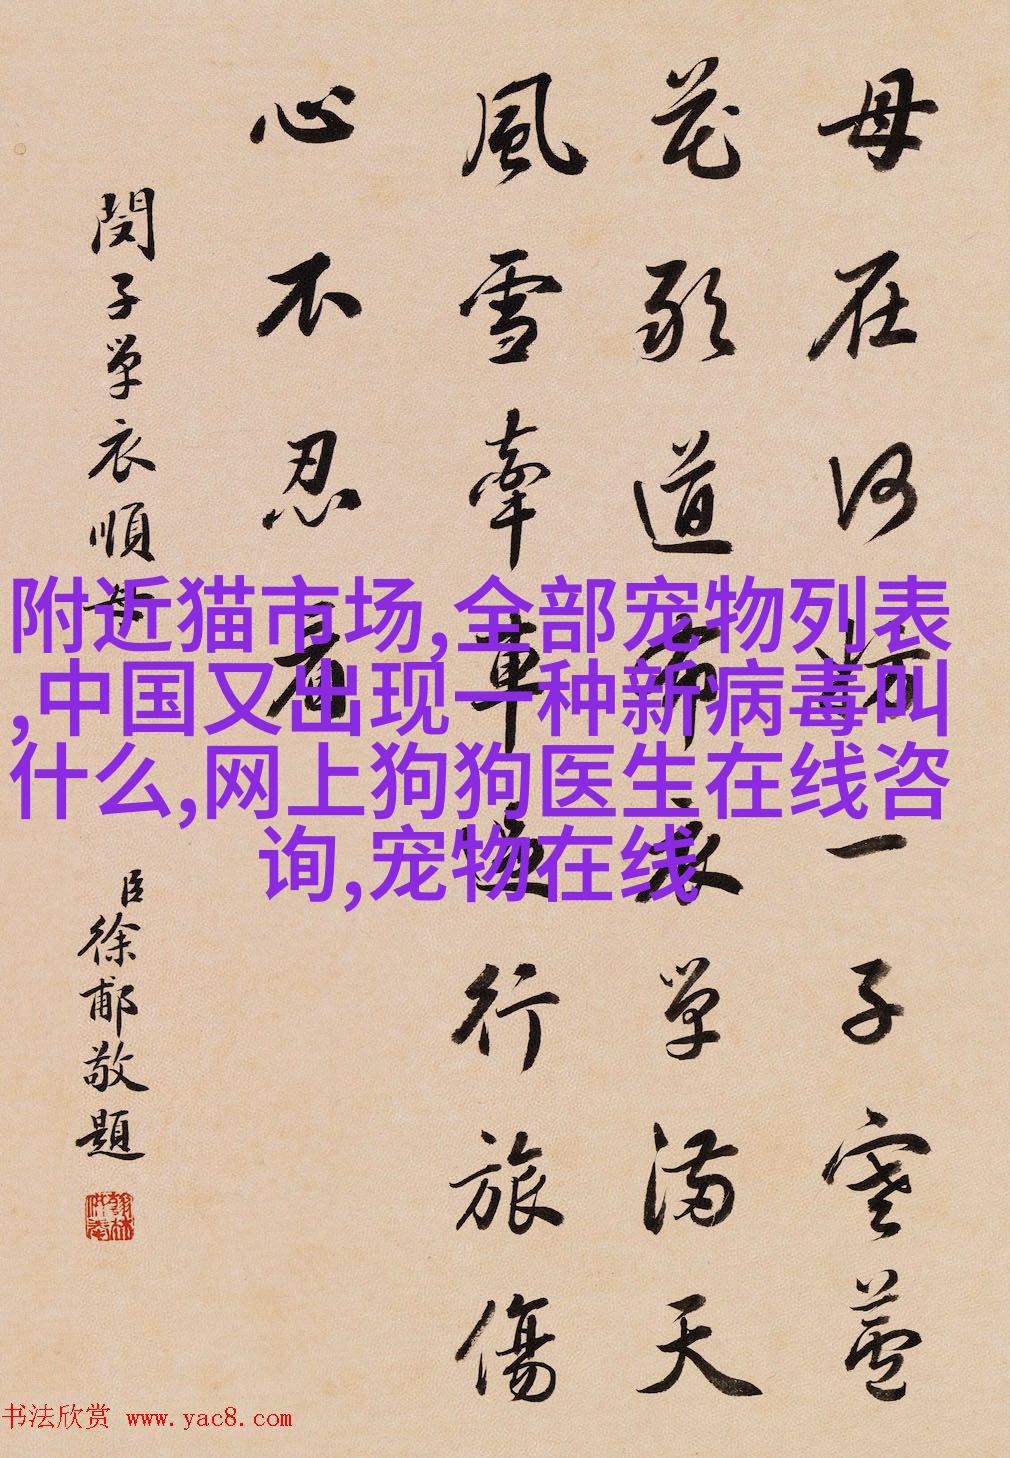 母在何妨一子寒蘆
花道衣單滿天
風雪牽車行旅傷
心不忍看
閔子單衣順母
臣徐郙敬題
附近猫市场,全部宠物列表
,中国又出现一种新病毒叫
什么,网上狗狗医生在线咨
询,宠物在线
书法欣赏 www.yac8.com